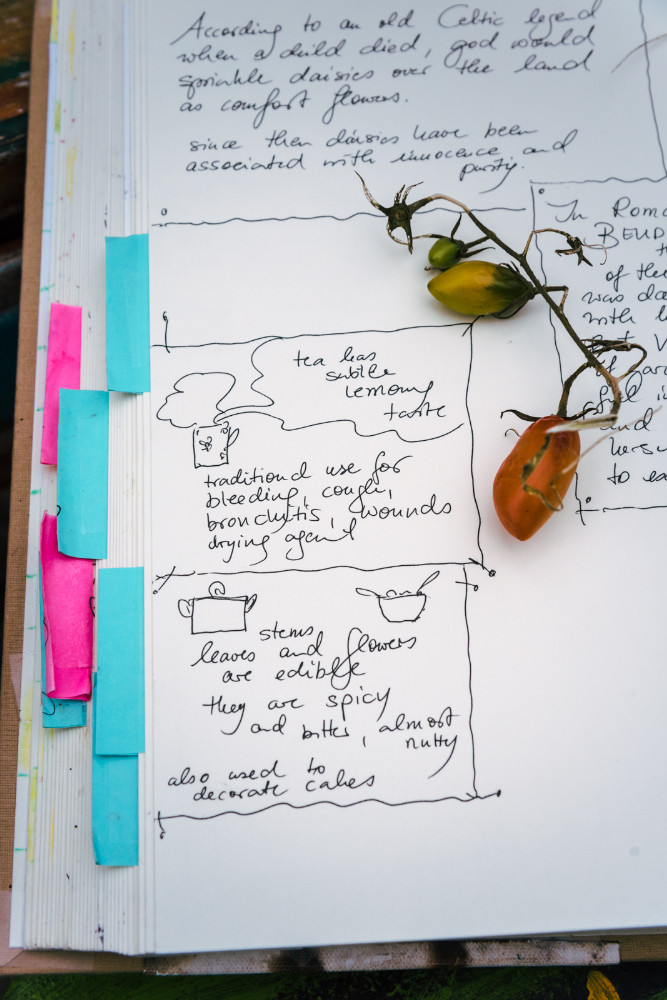 According to an old Celtic legend
when a child died, god would
sprinkle daisies over the land
as comfort flowers.
since then daisies have been
associated with innocence and
purity.
tea has
subtle
lemony
taste
traditional use for
bleeding, cough,
bronchytis, wounds
drying agent
stems
leaves and flowers
are edible
they are spicy
and bitter, almost
nutty
also used to
decorate cakes
In Roma
of the
was da
with
to ea